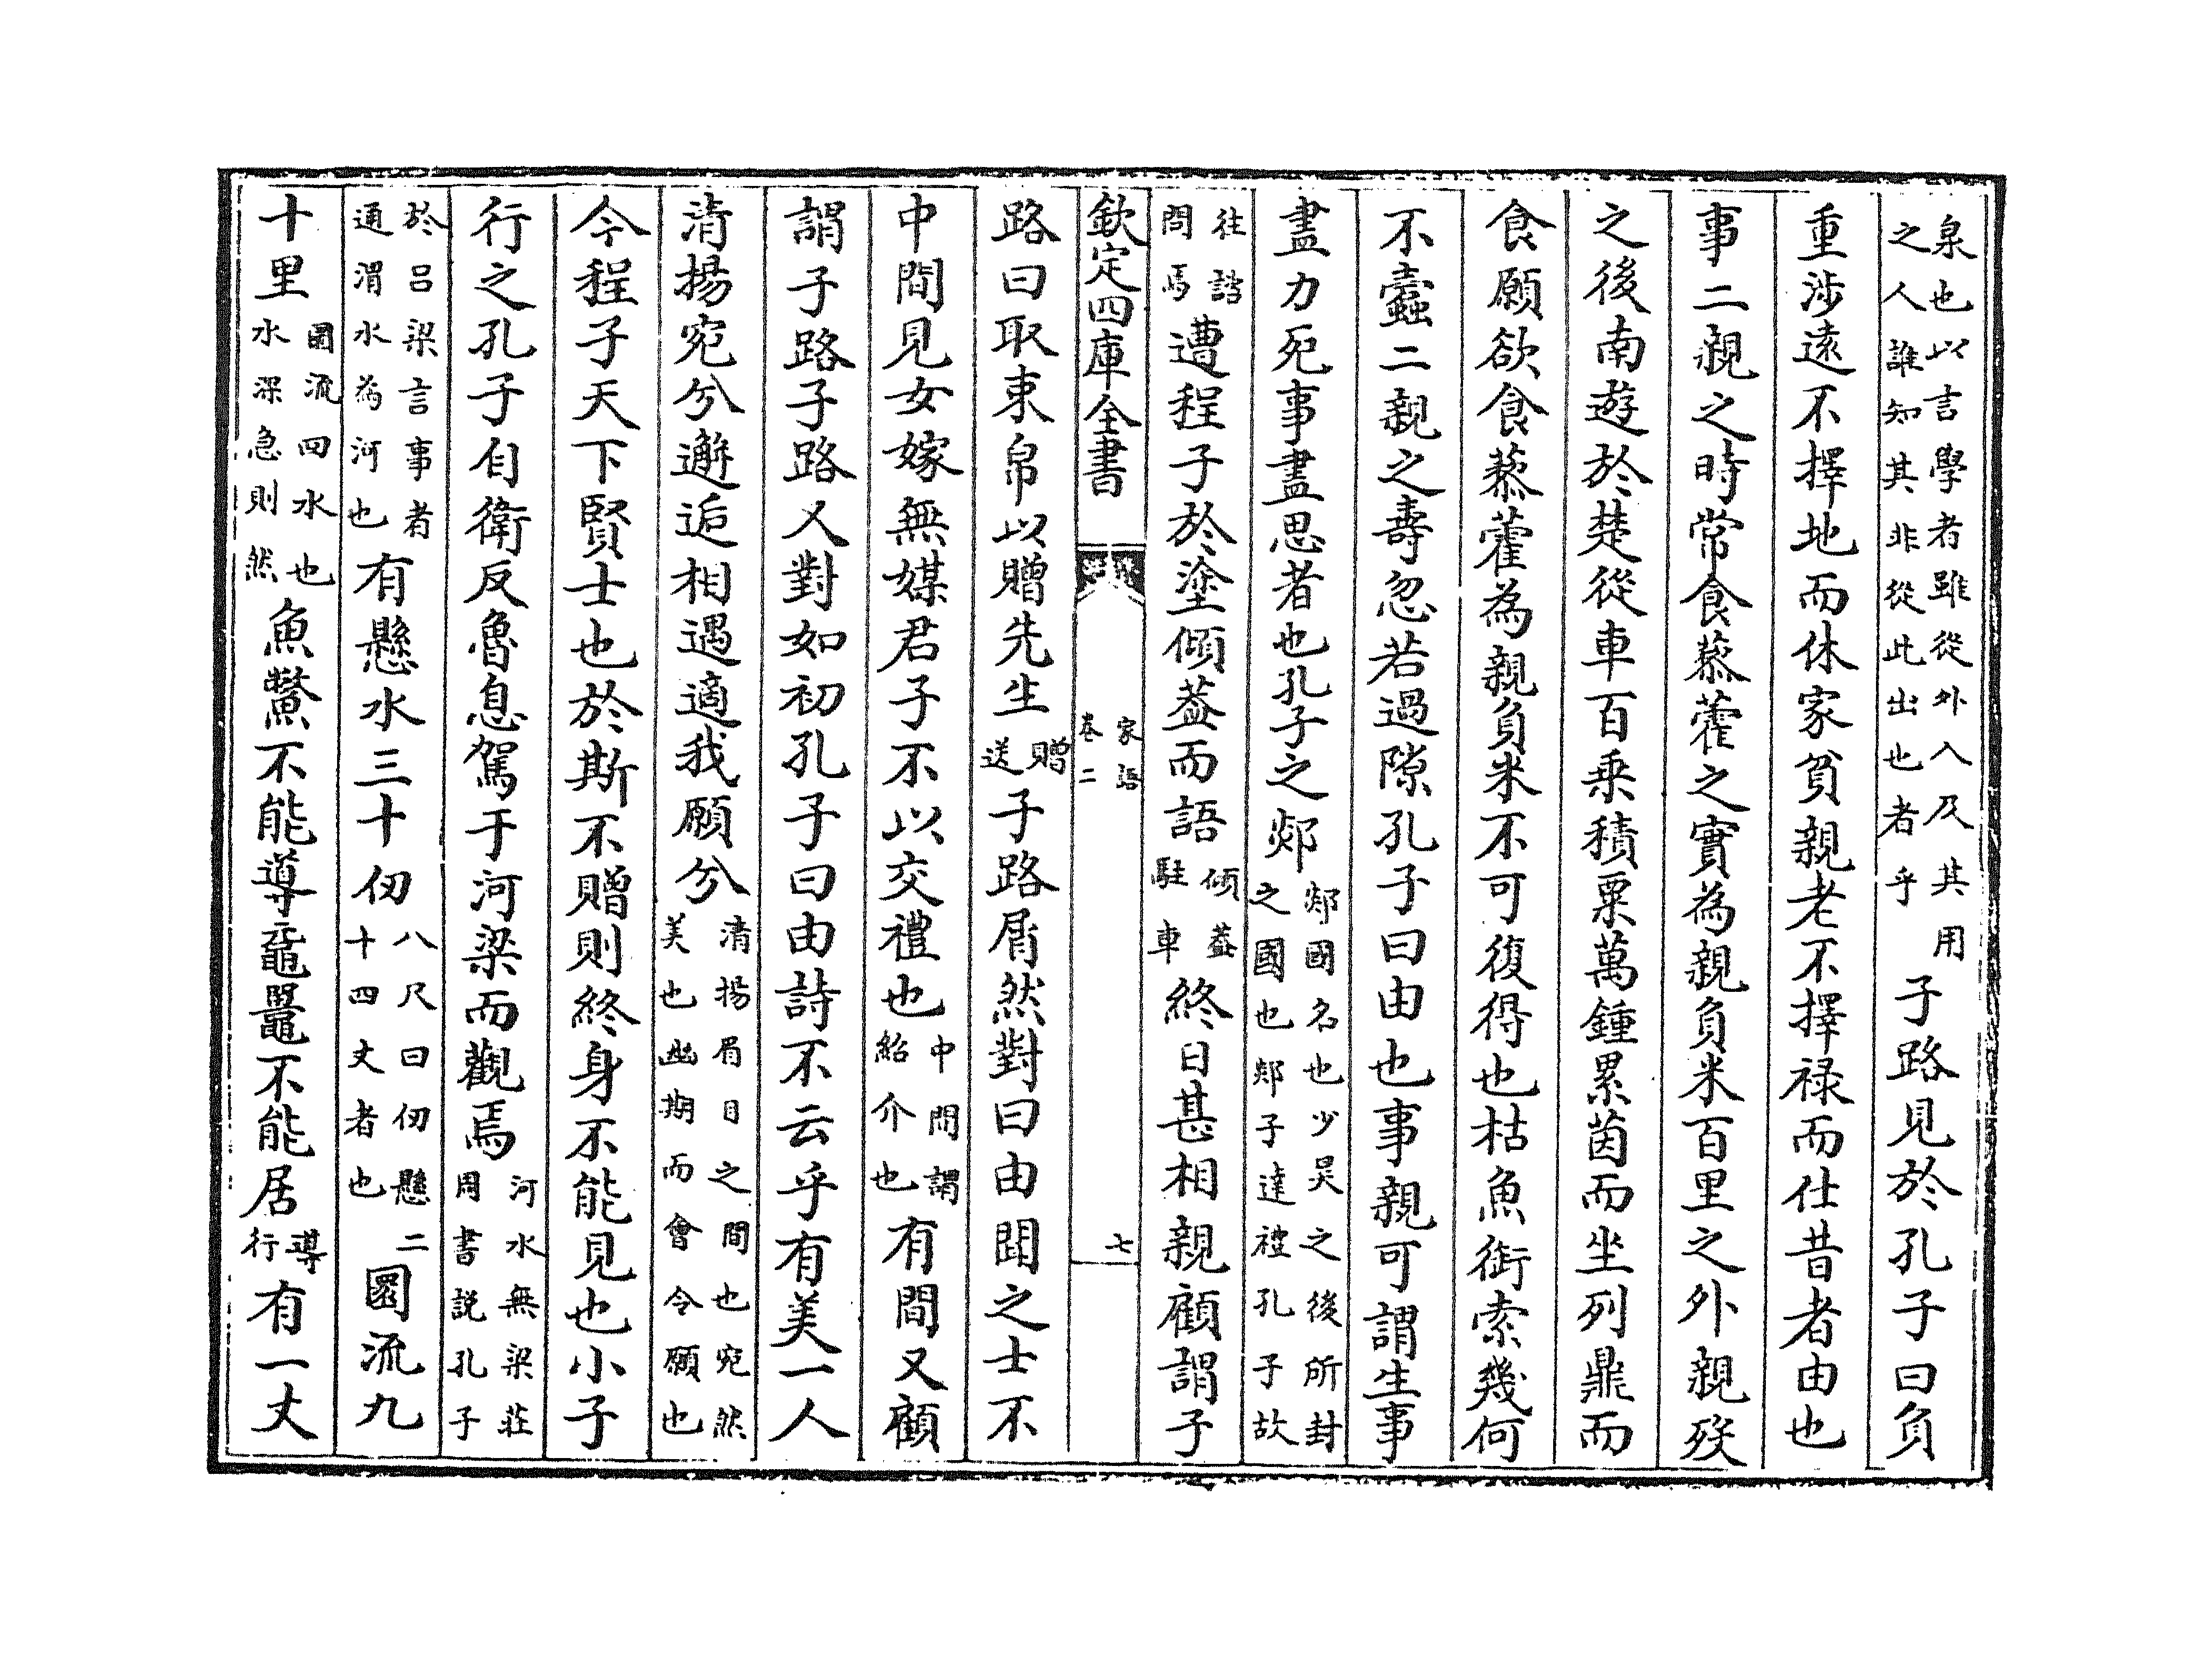 泉也以言學者雖從外入及其用之人誰知其非從此出也者乎子路見於孔子曰負
重涉遠不擇地而休家貧親老不擇禄而仕昔者由也
事二親之時常食藜藿之實為親負米百里之外親歿
之後南遊於楚從車百乘積粟萬鍾累茵而坐列鼎而
食願欲食藜藿為親負米不可復得也枯魚銜索幾何
不蠹二親之壽忽若過隙孔子曰由也事親可謂生事
盡力死事盡思者也孔子之郯郯國名也少昊之後所封之國也郯子達禮孔子故
往諮問焉遭程子於塗傾葢而語傾葢駐車終日甚相親顧謂子
欽定四庫全書
家語
卷二
七
路曰取束帛以贈先生贈送子路屑然對曰由聞之士不
中間見女嫁無媒君子不以交禮也中間謂紹介也有間又顧
謂子路子路又對如初孔子曰由詩不云乎有美一人
清揚宛兮邂逅相遇適我願兮清揚眉目之間也宛然美也幽期而會令願也
今程子天下賢士也於斯不贈則終身不能見也小子
行之孔子自衛反魯息駕于河梁而觀焉河水無梁莊周書説孔子
於呂梁言事者通渭水為河也有懸水三十仞八尺曰仞懸二十四丈者也圜流九
十里圜流回水也水深急則然魚鱉不能導黿鼉不能居導行有一丈